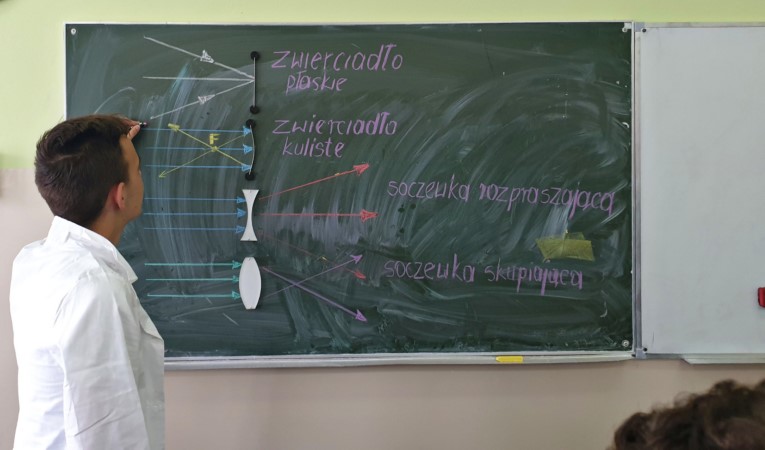 zwierciadło
płaskie
F
zwierciadło
kuliste
soczewka rozpraszająca
soczewka skupiająca